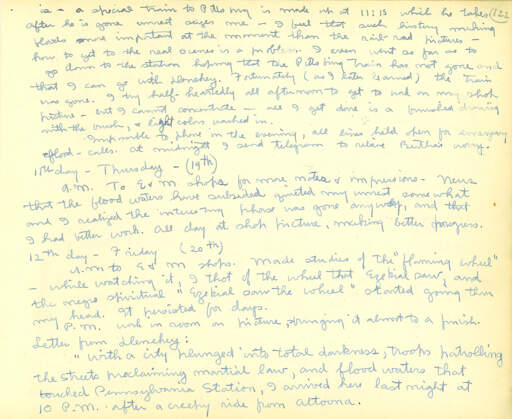 is - a special train to Pittsburg is made up at 11:15 which he takes (122
after he is gone unrest seizes me - I feel that such history making
floods more important at the moment than the rail-road pictures -
how to get to the real scenes is a problem. I even went so far as to
go down to the station hoping that the Pittsburg train has not gone and
that I can go with Llenchey. Fortunately (as I later learned) the train
was gone. I try half-heartedly all afternoon to get to work on my shop
picture - but I cannot concentrate - all I get done is a finished drawing
with the brush, & light colors washed in.
Impossible to phone in the evening, all lines held open for emergency
flood-calls. At midnight I send telegram to relieve Bertha's worry.
11th day - Thursday - (19th)
A.M. To E & M shops for more notes & impressions - News
that the flood waters have subsided quieted my unrest somewhat
and I realized the interesting phase was gone anyway, and that
I had better work. All day at shop picture, making better progress.
12th day - Friday (20th)
A.M. to E & M shops. Made studies of the "flaming wheel"
- while watching it, I thot of the wheel that Ezekial saw, and
the negro spiritual "Ezekial saw the wheel" started going thru
my head. It persisted for days.
P.M. work in room on picture, bringing it almost to a finish.
Letter from Llenchey:
"With a city plunged into total darkness, troops patrolling
the streets proclaiming martial law, and flood waters that
touched Pennsylvania Station, I arrived here last night at
10 P.M. after a creepy ride from Altoona.